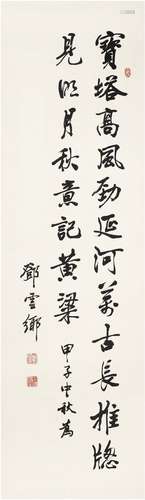 寶塔高風勁延河萬古長推牕
見明月秋意記黃粱 甲子中秋為
鄧雲鄉